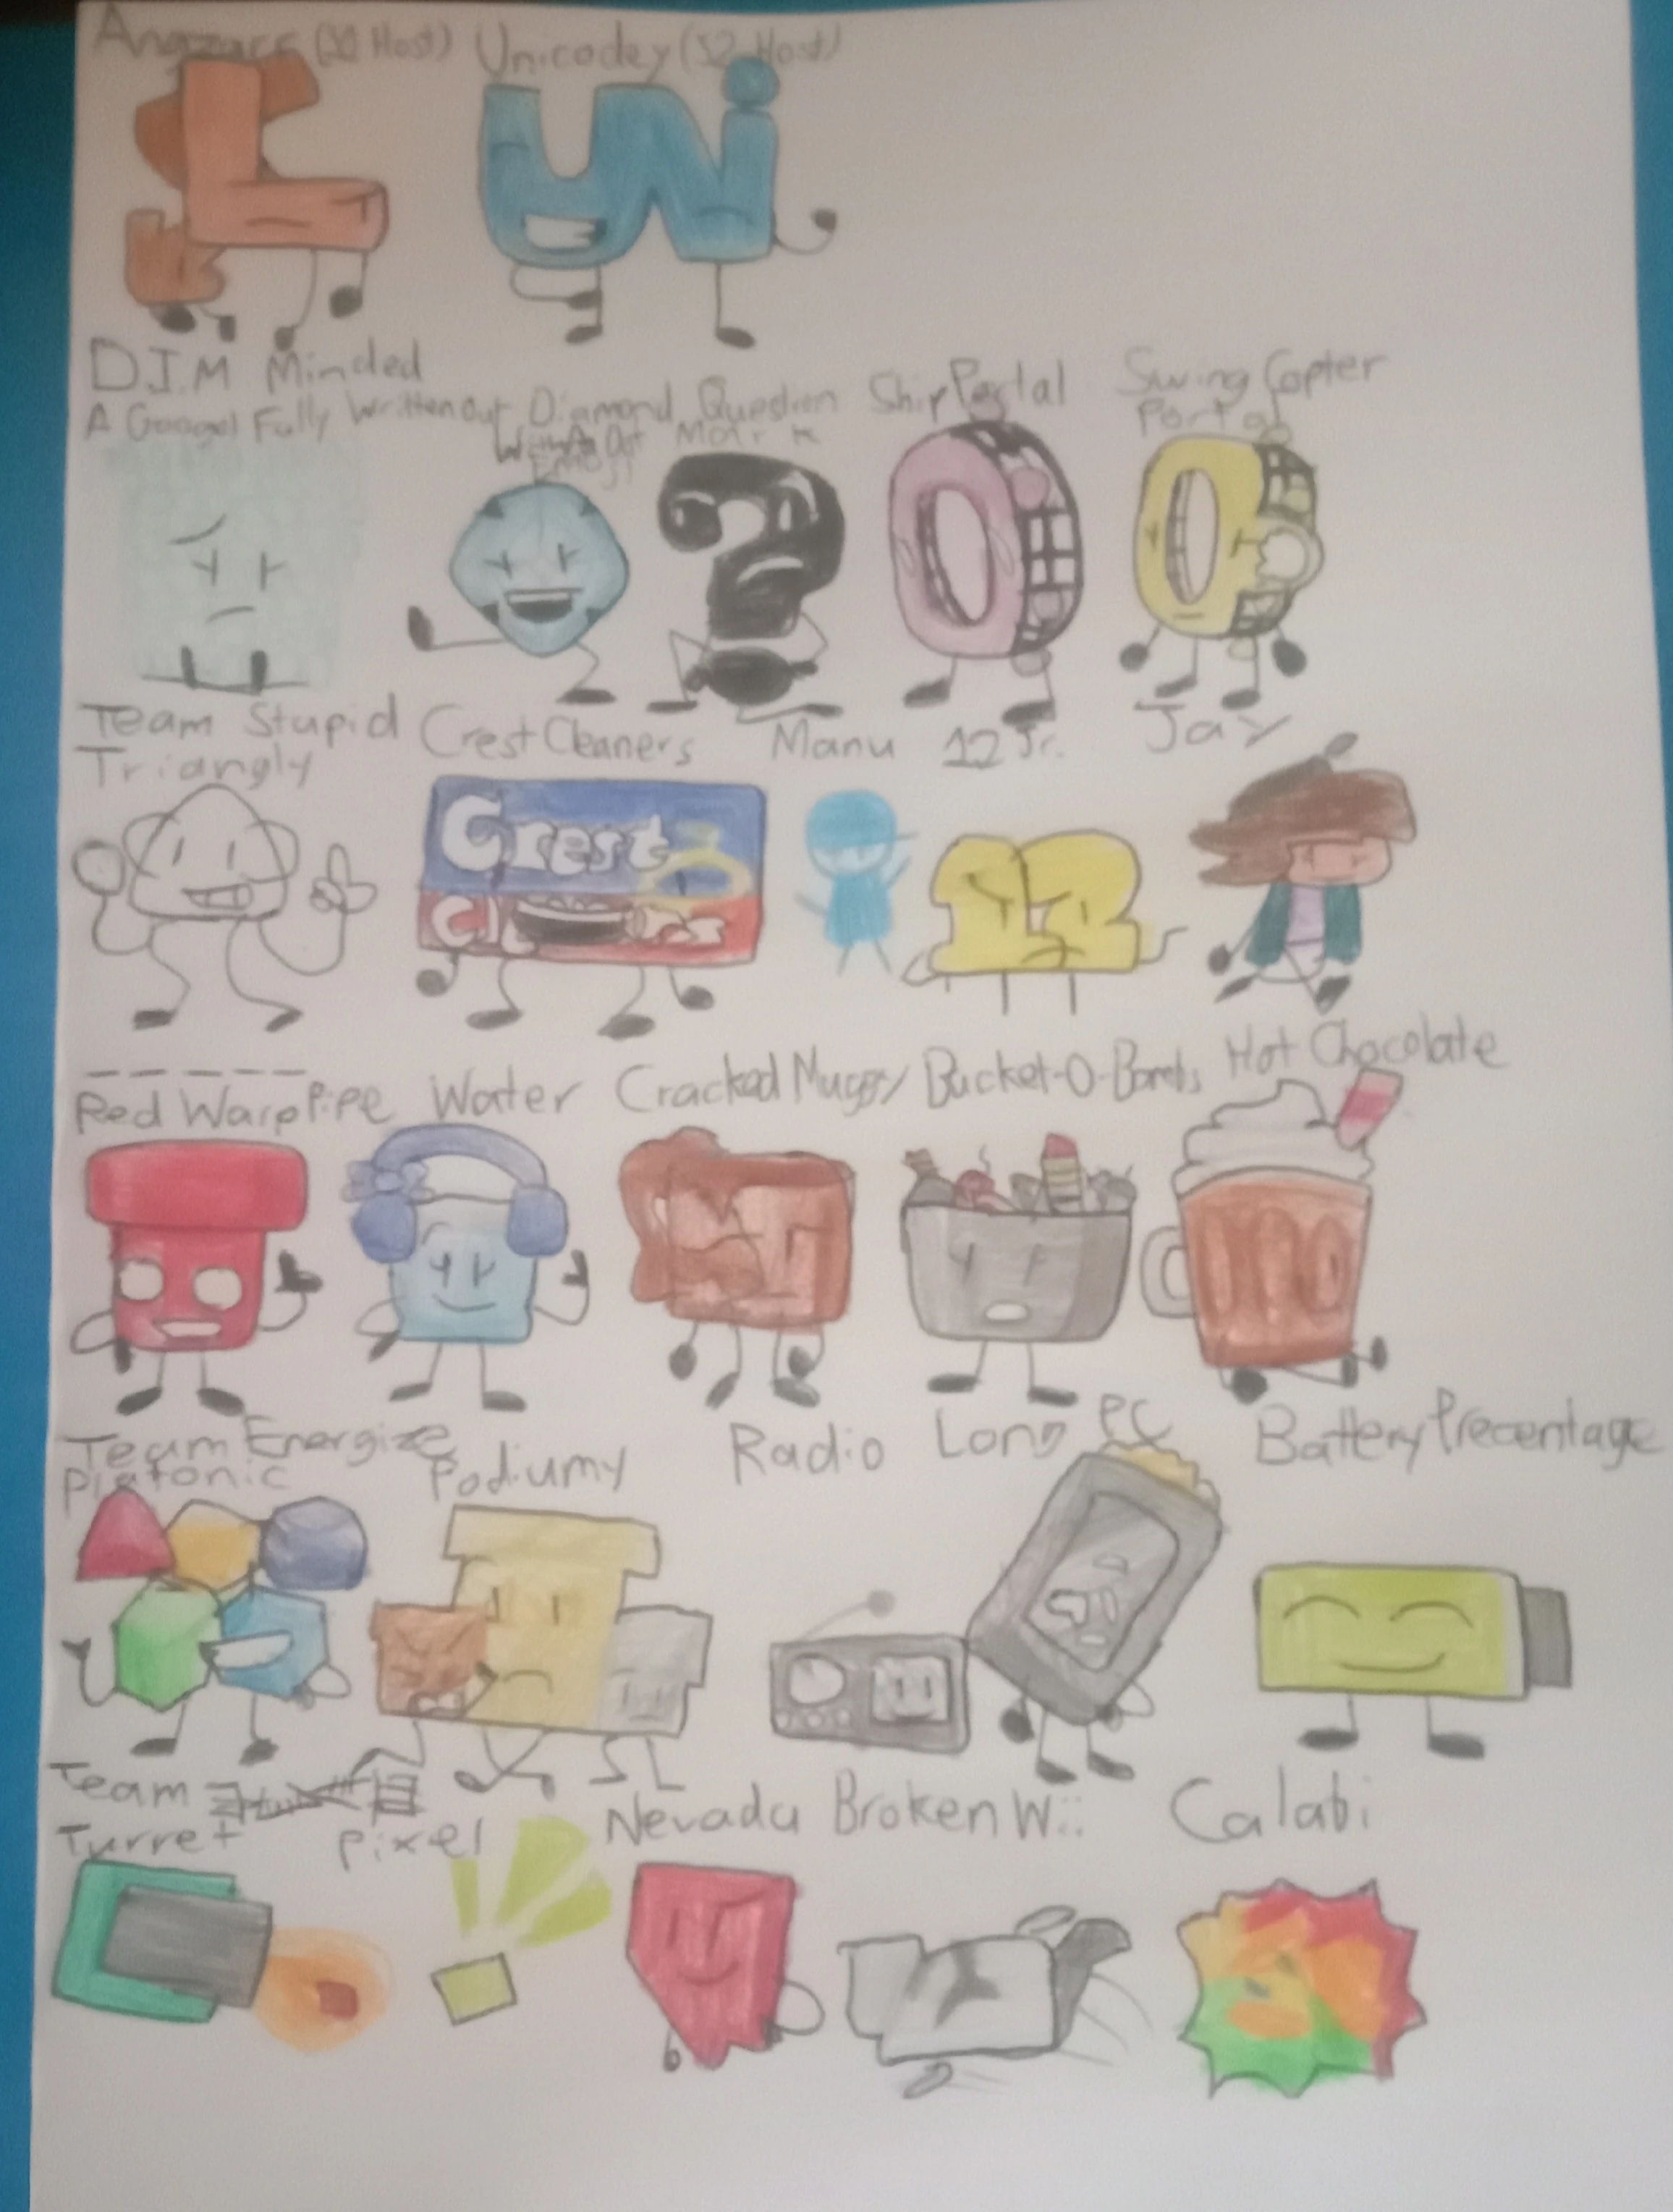 (S1 Host) Unicodey (S2 Host)
D.I.M Minded
A Googol Fully Written out Diamond With A Dot Emoji Question Mark Ship Portal Swing Copter Portal
Team Stupid
Triangly Crest Cleaners Manu 12 Jr. Jay
Crest
12
_ _ _ _ _
Red Warp Pipe Water Cracked Muggy Bucket-O-Bombs Hot Chocolate
Team Energize
Platonic Podiumy Radio Long PC Battery Precentage
Team
Turret Pixel Nevada Broken Wii Calabi